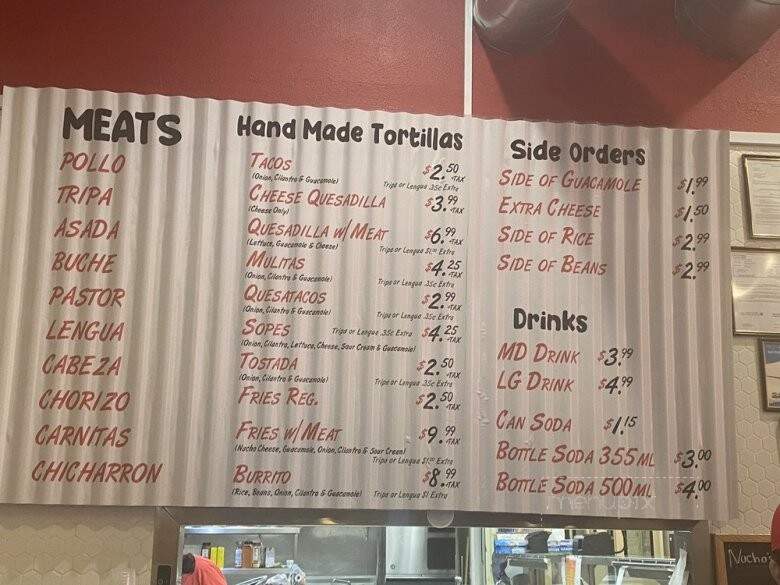 MEATS
POLLO
TRIPA
ASADA
BUCHE
PASTOR
LENGUA
CABEZA
CHORIZO
CARNITAS
CHICHARRON
Hand Made Tortillas
TACOS $2.50 +TAX
(Onion, Cilantro & Guacamole) Tripa or Lengua .35c Extra
CHEESE QUESADILLA $3.99 +TAX
(Cheese Only)
QUESADILLA W/ MEAT $6.99 +TAX
(Lettuce, Guacamole & Cheese) Tripa or Lengua $1.00 Extra
MULITAS $4.25 +TAX
(Onion, Cilantro & Guacamole) Tripa or Lengua .35c Extra
QUESATACOS $2.99 +TAX
(Onion, Cilantro & Guacamole) Tripa or Lengua .35c Extra
SOPES Tripa or Lengua .35c Extra $4.25 +TAX
(Onion, Cilantro, Lettuce, Cheese, Sour Cream & Guacamole)
TOSTADA $2.50 +TAX
(Onion, Cilantro & Guacamole) Tripa or Lengua .35c Extra
FRIES REG. $2.50 +TAX
FRIES W/ MEAT $9.99 +TAX
(Nacho Cheese, Guacamole, Onion, Cilantro & Sour Cream)
Tripa or Lengua $1.00 Extra
BURRITO $8.99 +TAX
(Rice, Beans, Onion, Cilantro & Guacamole) Tripa or Lengua $1 Extra
Side Orders
SIDE OF GUACAMOLE $1.99
EXTRA CHEESE $1.50
SIDE OF RICE $2.99
SIDE OF BEANS $2.99
Drinks
MD DRINK $3.99
LG DRINK $4.99
CAN SODA $1.15
BOTTLE SODA 355 ML $3.00
BOTTLE SODA 500 ML $4.00
menupix
Nacho's